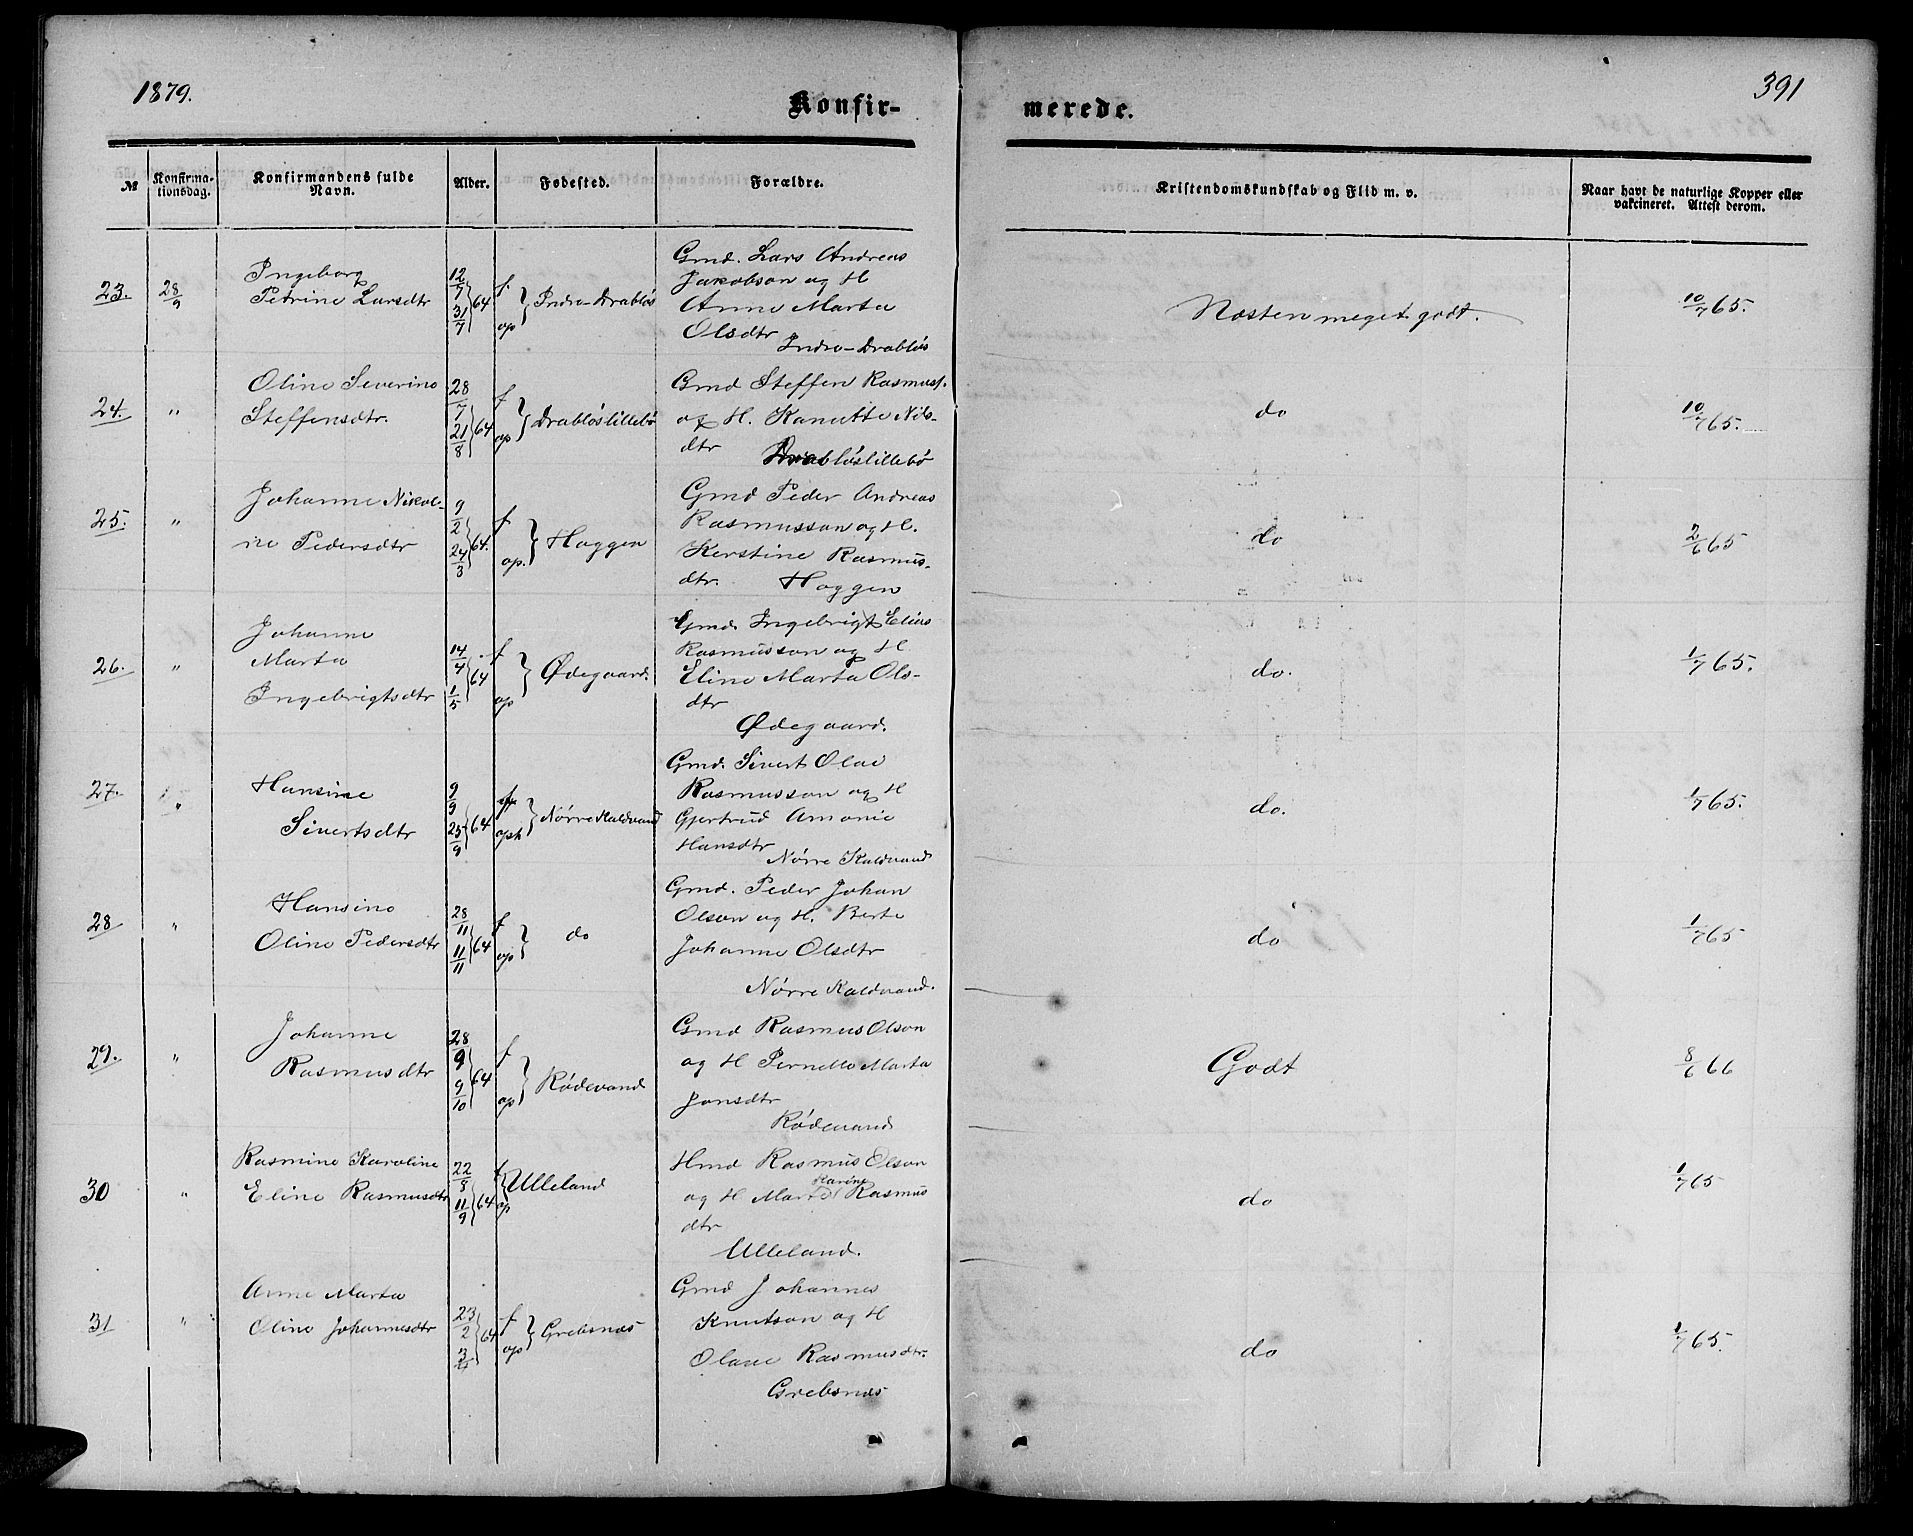 1879.
391
Konfir-
merede.
№
Konfirma-
tionsdag.
Konfirmandens fulde
Navn.
Alder.
Fødested.
Forældre.
Kristendomskundskab og Flid m. v.
Naar havt de naturlige Kopper eller
vakcineret. Attest derom.
23. 28/9
Ingeborg
Petrine Larsdtr
12/7 31/7 } 64
f. op } Indre-Drabløs
Gmd. Lars Andreas
Jakobson og H
Anne Marta
Olsdtr
Indre-Drabløs
Næsten meget godt.
10/7 65.
24. "
Oline Severine
Steffensdtr.
28/7 21/8 } 64
f op } Drabløslillebø
Gmd Steffen Rasmuss.
og H. Kanutte Nils-
dtr
Drabløslillebø
do
10/7 65.
25. "
Johanne Nikol-
ine Pedersdtr
9/2 24/3 } 64.
f op. } Haggen
Gmd Peder Andreas
Rasmusson og H.
Kerstine Rasmus-
dtr. Haggen
do
2/6 65
26. "
Johanne
Marta
Ingebrigtsdtr
14/4 1/5 } 64
f op } Ødegaard.
Gmd. Ingebrigt Elias
Rasmusson og H
Eline Marta Ols-
dtr
Ødegaard.
do.
1/7 65.
27. "
Hansine
Sivertsdtr
9/9 25/9 } 64
oph } Nørre Kaldvand
Gmd. Sivert Olai
Rasmusson og H
Gjertrud Amonie
Hansdtr
Nørre Kaldvand
do.
1/7 65.
28 "
Hansine
Oline Pedersdtr
28/11 11/11 } 64
f op } do
Gmd. Peder Johan
Olson og H. Berte
Johanne Olsdtr
Nørre Kaldvand.
do
1/7 65
29. "
Johanne
Rasmusdtr
28/9 9/10 } 64
f op } Rødevand
Gmd Rasmus Olson
og H Pernelle Marta
Jonsdtr
Rødevand
Godt
8/6 66
30 "
Rasmine Karoline
Eline Rasmusdtr
22/8 11/9 } 64
f op } Ulleland
Hmd Rasmus Olson
Karine
og H Marta Rasmus
dtr
Ulleland.
do
1/7 65
31 "
Anne Marta
Oline Johannesdtr
23/2 3/4 } 64
f op } Grebsnæs
Gmd Johannes
Knutson og H
Olane Rasmusdtr.
Grebsnæs
do
1/7 65.